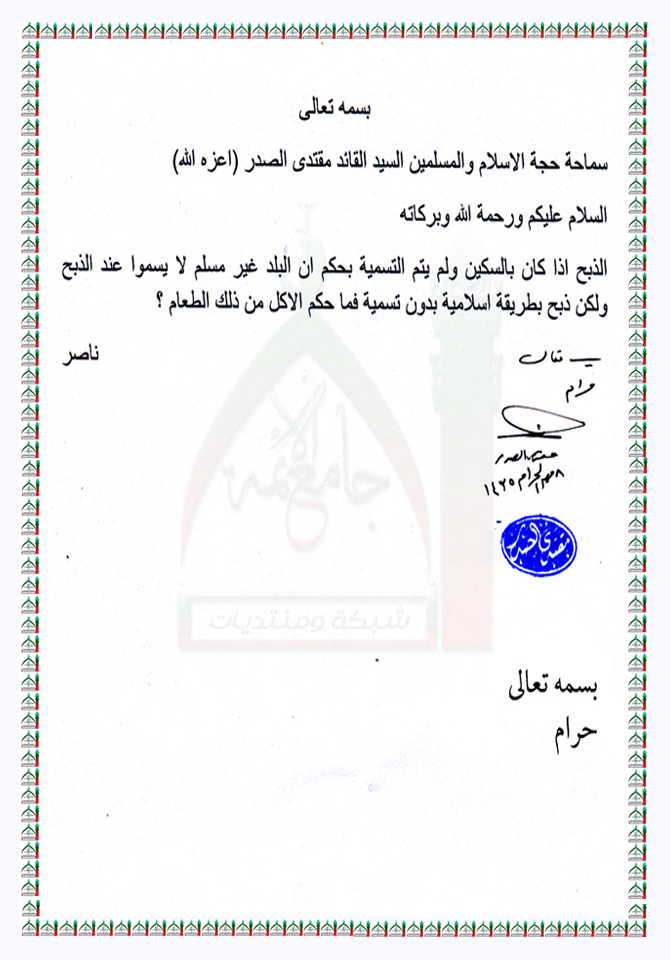 بسمه تعالى
سماحة حجة الاسلام والمسلمين السيد القائد مقتدى الصدر (اعزه الله)
السلام عليكم ورحمة الله وبركاته
الذبح اذا كان بالسكين ولم يتم التسمية بحكم ان البلد غير مسلم لا يسموا عند الذبح
ولكن ذبح بطريقة اسلامية بدون تسمية فما حكم الاكل من ذلك الطعام ؟
ناصر
بسمه تعالى
حرام
مقتدى الصدر
الحرام ١٤٣٥
مقتدى الصدر
جامع الأئمة
شبكة ومنتديات
بسمه تعالى
حرام